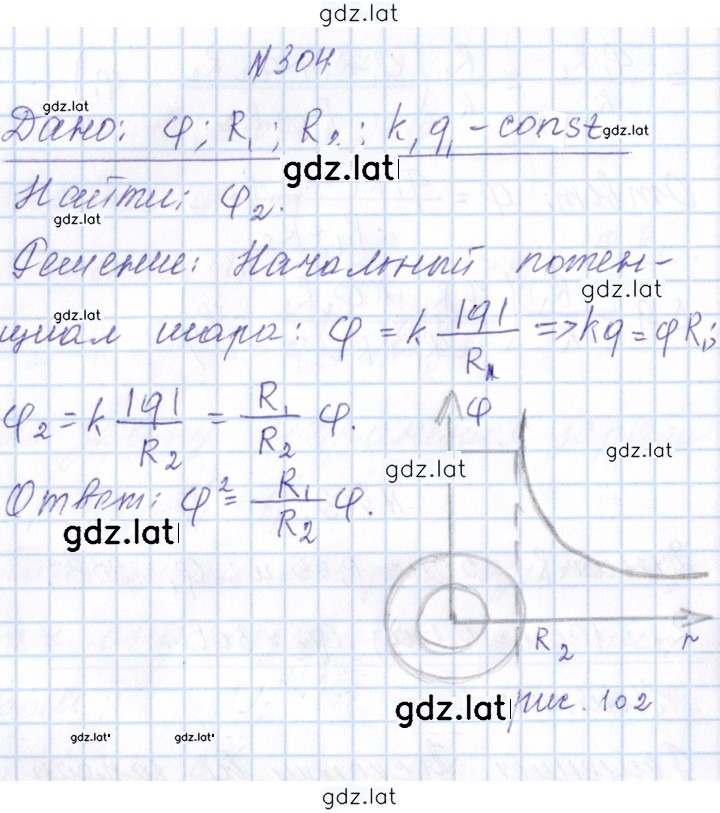 gdz.lat
№304
gdz.lat
Дано: φ; R₁; R₂; k, q, - const
gdz.lat
gdz.lat
Найти: φ₂.
gdz.lat
Решение: Начальный потен-
gdz.lat
gdz.lat
циал шара: φ = k |q| / R₁ => kq = φR₁;
φ₂ = k |q| / R₂ = R₁ / R₂ φ.
φ
gdz.lat
gdz.lat
Ответ: φ² = R₁ / R₂ φ.
gdz.lat
R₂
r
gdz.lat
рис. 102
gdz.lat
gdz.lat
gdz.lat